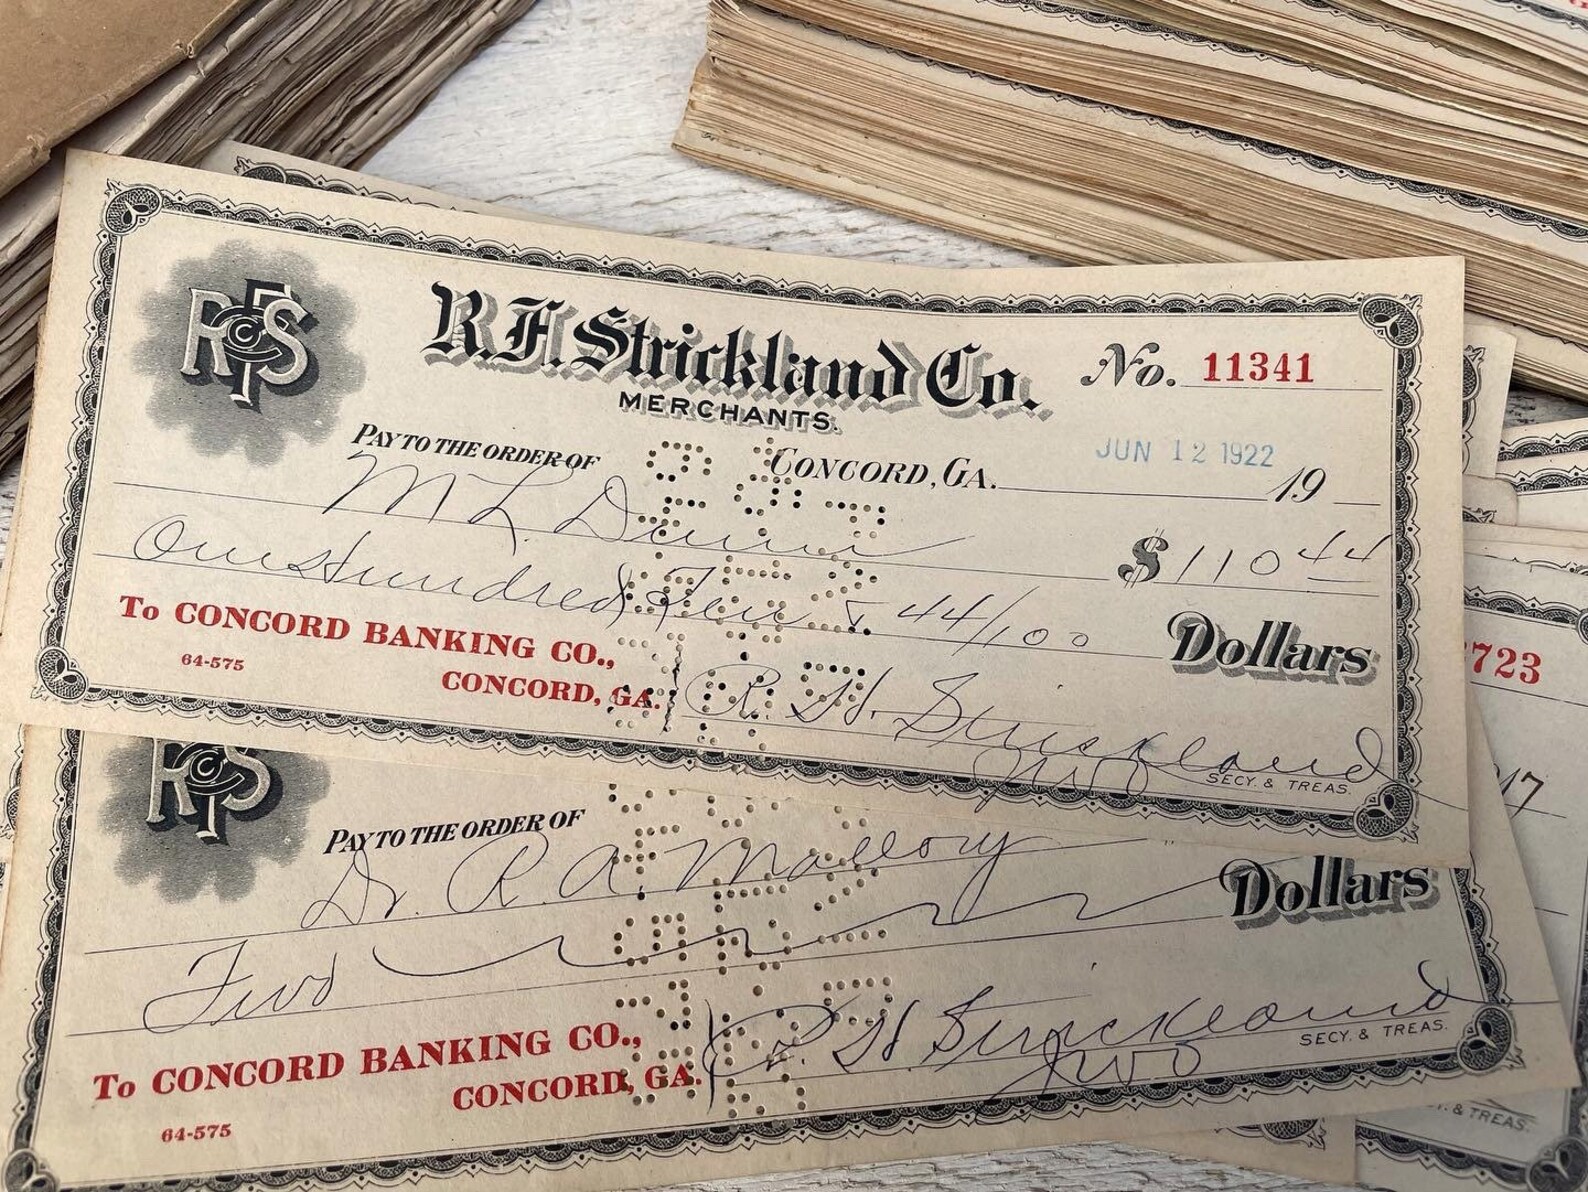 RFS
CCo
R.F. Strickland Co.
MERCHANTS.
No. 11341
PAY TO THE ORDER OF
CONCORD, GA.
JUN 12 1922
19
M L Dunn
$110 44
One Hundred Ten & 44/100
Dollars
To CONCORD BANKING CO.,
64-575
CONCORD, GA.
R. H. Strickland
SECY. & TREAS.
723
RFS
17
PAY TO THE ORDER OF
Dr. R. A. Mallory
Two
Dollars
To CONCORD BANKING CO.,
CONCORD, GA.
64-575
R. H. Strickland
SECY. & TREAS.
& TREAS.